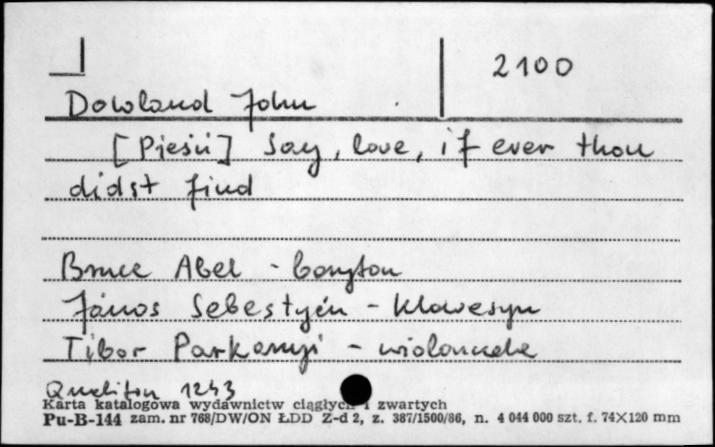 2100
Dowland John
[Pieśń] Say, love, if ever thou
didst find
Bruce Abel - baryton
János Sebestyén - klawesyn
Tibor Parkanyi - wiolonczela
Qualiton 1243
Karta katalogowa wydawnictw ciągłych i zwartych
Pu-B-144 zam. nr 768/DW/ON ŁDD Z-d 2, z. 387/1500/86, n. 4 044 000 szt. f. 74×120 mm